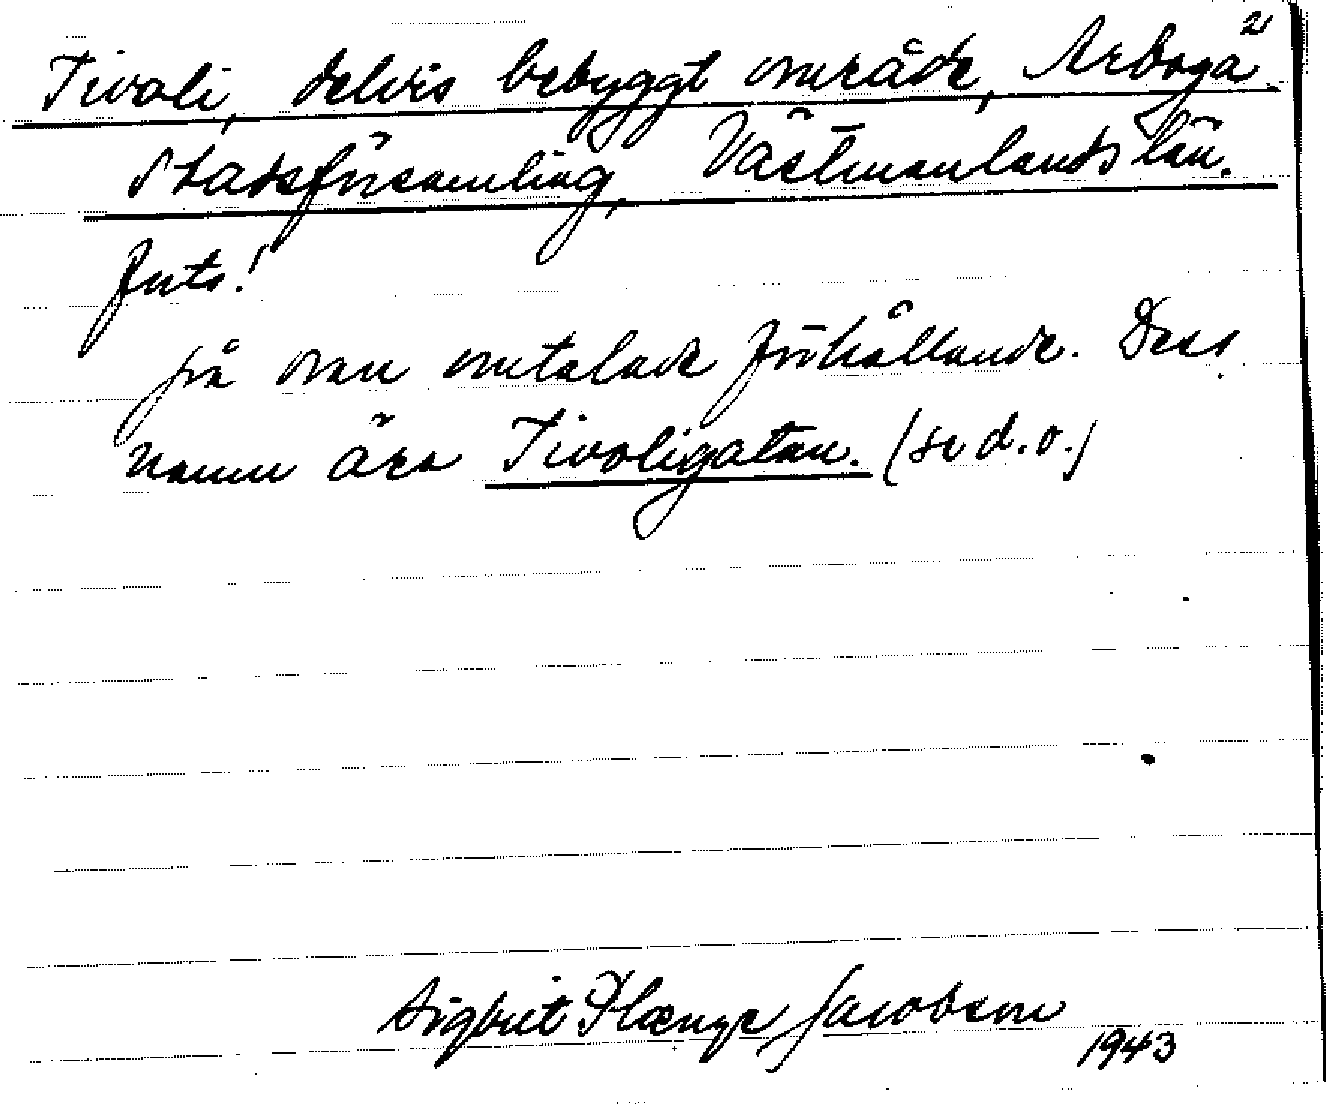 2
Tivoli, delvis bebyggt område, Arboga
stadsförsamling, Västmanlands län.
forts!
på ovan omtalade förhållande. Dess
namn äro Tivoligatan. (se d.o.)
Sigbrit Plænge Jacobson
1943